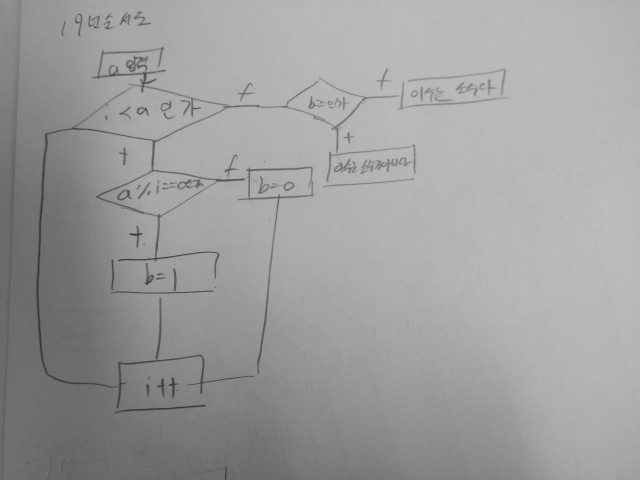 19번순서도
a 입력
i < a 인가
f
b==인가
f
이수는 소수다
t
이수는 소수가아니다
t
a % i == 0인가
f
b=0
t
b=1
i++